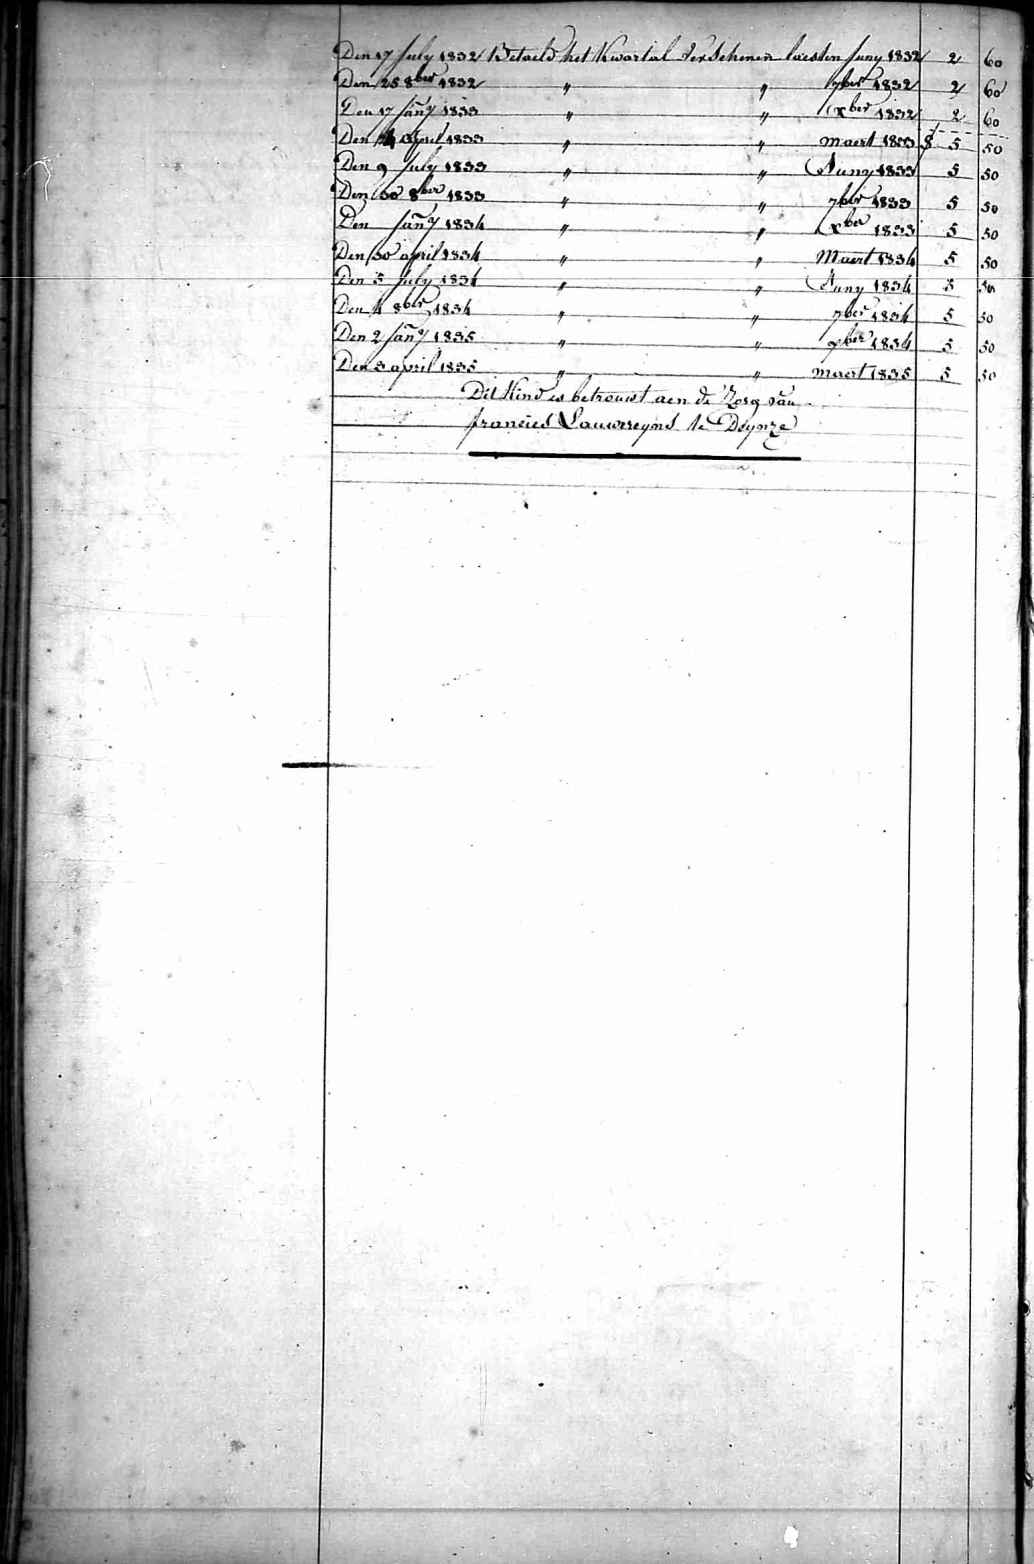 Den 17 July 1832 Betaeld het Kwartal verschenen laesten Juny 1832 2 60
Den 25 8ber 1832 " " 7ber 1832 2 60
Den 17 Jañy 1833 " " Xber 1832 2 60
Den april 1833 " " Maert 1833 5 50
Den 9 July 1833 " " Juny 1833 5 50
Den 30 8ber 1833 " " 7ber 1833 5 50
Den Jañy 1834 " " Xber 1833 5 50
Den 30 april 1834 " " Maert 1834 5 50
Den 5 July 1834 " " Juny 1834 5 50
Den 4 8ber 1834 " " 7ber 1834 5 50
Den 2 Jañy 1835 " " 1834 5 50
Den 3 april 1835 " " maert 1835 5 50
Dit Kind is betrouwt aen de Zorg van
francies Lauwereyns te Deynze